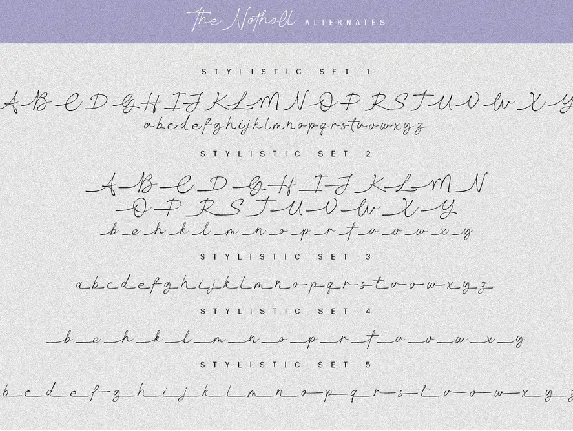 The Nathall ALTERNATES
STYLISTIC SET 1
A B C D G H I J K L M N O P R S T U V W X Y
a b c d e f g h i j k l m n o p q r s t u v w x y z
STYLISTIC SET 2
A B C D G H I J K L M N
O P R S T U V W X Y
b e h k l m n o p r t v o w x y
STYLISTIC SET 3
a b c d e f g h i j k l m n o p q r s t v o w x y z
STYLISTIC SET 4
b e h k l m n o p r t v o w x y
STYLISTIC SET 5
b c d e f g h i j k l m n o p q r s t v o w x y z